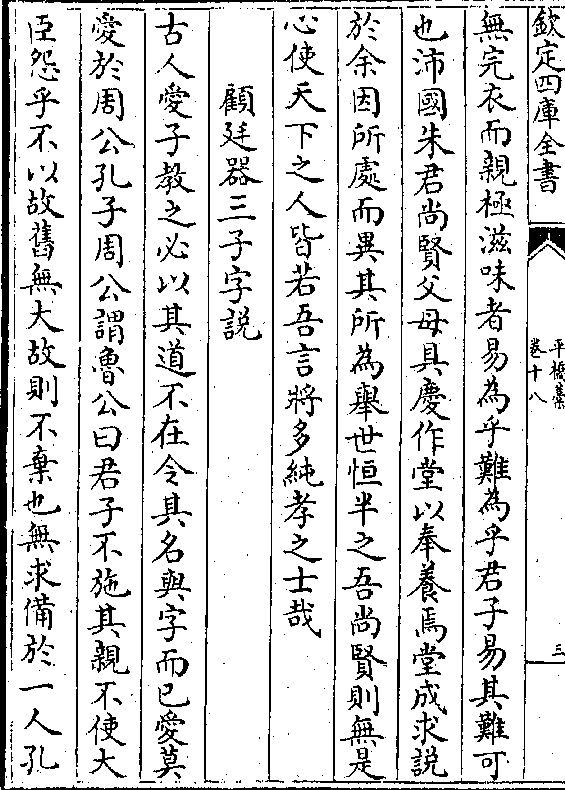 欽定四庫全書
平橋藁
卷十八
三
無完衣而親極滋味者易為乎難為乎君子易其難可
也沛國朱君尚賢父母具慶作堂以奉養焉堂成求説
於余因所處而異其所為舉世恒半之吾尚賢則無是
心使天下之人皆若吾言將多純孝之士哉
顧廷器三子字説
古人愛子教之必以其道不在令其名與字而已愛莫
愛於周公孔子周公謂魯公曰君子不施其親不使大
臣怨乎不以故舊無大故則不棄也無求備於一人孔